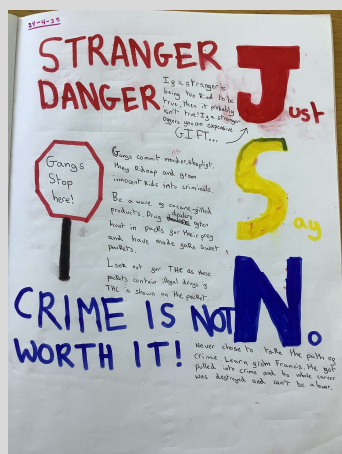 24-4-25
STRANGER
DANGER
If a stranger is
being too kind to be
true, then it probably
isn't true! If a stranger
offers you an expensive
GIFT...
Just
Gangs
Stop
here!
Gangs commit murder, shoplift,
they kidnap and groom
innocent kids into criminals.
Be a ware of cocane-filled
products. Drug dealers often
hoat in packs for their prey
and have made fake sweet
packets.
Look out for THC as those
packets contain illegal drugs if
THC is shown on the packet.
Say
No
CRIME IS NOT
WORTH IT!
Never chose to take the path of
crime. Learn from Francis. He got
pulled into crime and his whole career
was destroyed and can't be a lawer.